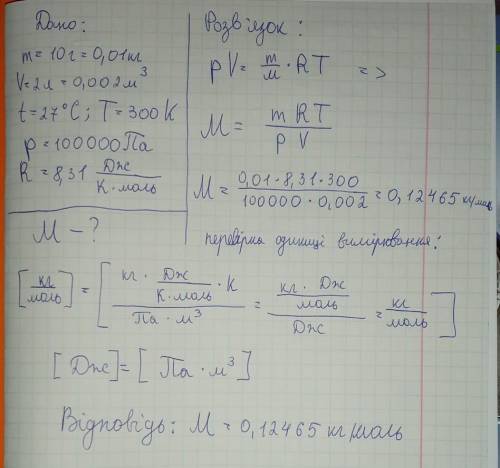 Дано:
m = 10 г = 0,01 кг
V = 2 л = 0,002 м³
t = 27°C ; T = 300 K
p = 100000 Па
R = 8,31 Дж / К·моль
M – ?
Розв'язок:
pV = m/M · RT =>
M = m RT / p V
M = 0,01 · 8,31 · 300 / 100000 · 0,002 = 0,12465 кг/моль
перевірка одиниці вимірювання:
[кг/моль] = [кг · Дж/К·моль · К / Па · м³ = кг · Дж/моль / Дж = кг/моль]
[Дж] = [Па · м³]
Відповідь: M = 0,12465 кг/моль